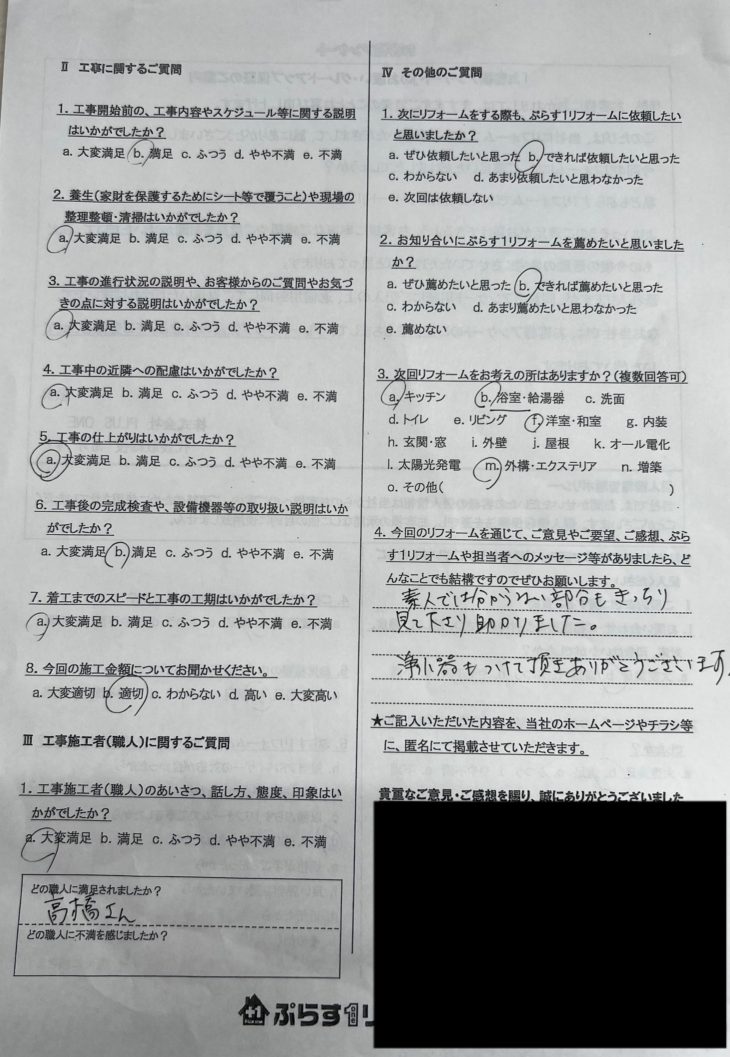 Ⅱ 工事に関するご質問
1. 工事開始前の、工事内容やスケジュール等に関する説明
はいかがでしたか?
a. 大変満足 b. 満足 c. ふつう d. やや不満 e. 不満
2. 養生(家財を保護するためにシート等で覆うこと)や現場の
整理整頓・清掃はいかがでしたか?
a. 大変満足 b. 満足 c. ふつう d. やや不満 e. 不満
3. 工事の進行状況の説明や、お客様からのご質問やお気づ
きの点に対する説明はいかがでしたか?
a. 大変満足 b. 満足 c. ふつう d. やや不満 e. 不満
4. 工事中の近隣への配慮はいかがでしたか?
a. 大変満足 b. 満足 c. ふつう d. やや不満 e. 不満
5. 工事の仕上がりはいかがでしたか?
a. 大変満足 b. 満足 c. ふつう d. やや不満 e. 不満
6. 工事後の完成検査や、設備機器等の取り扱い説明はいか
がでしたか?
a. 大変満足 b. 満足 c. ふつう d. やや不満 e. 不満
7. 着工までのスピードと工事の工期はいかがでしたか?
a. 大変満足 b. 満足 c. ふつう d. やや不満 e. 不満
8. 今回の施工金額についてお聞かせください。
a. 大変適切 b. 適切 c. わからない d. 高い e. 大変高い
Ⅲ 工事施工者(職人)に関するご質問
1. 工事施工者(職人)のあいさつ、話し方、態度、印象はい
かがでしたか?
a. 大変満足 b. 満足 c. ふつう d. やや不満 e. 不満
どの職人に満足されましたか?
高橋さん
どの職人に不満を感じましたか?
Ⅳ その他のご質問
1. 次にリフォームをする際も、ぷらす1リフォームに依頼したい
と思いましたか?
a. ぜひ依頼したいと思った b. できれば依頼したいと思った
c. わからない d. あまり依頼したいと思わなかった
e. 次回は依頼しない
2. お知り合いにぷらす1リフォームを薦めたいと思いました
か?
a. ぜひ薦めたいと思った b. できれば薦めたいと思った
c. わからない d. あまり薦めたいと思わなかった
e. 薦めない
3. 次回リフォームをお考えの所はありますか?(複数回答可)
a. キッチン b. 浴室・給湯器 c. 洗面
d. トイレ e. リビング f. 洋室・和室 g. 内装
h. 玄関・窓 i. 外壁 j. 屋根 k. オール電化
l. 太陽光発電 m. 外構・エクステリア n. 増築
o. その他( )
4. 今回のリフォームを通じて、ご意見やご要望、ご感想、ぷら
す1リフォームや担当者へのメッセージ等がありましたら、ど
んなことでも結構ですのでぜひお願いします。
素人では分からない部分もきっちり
見て下さり助かりました。
浄水器もつけて頂きありがとうございます。
★ご記入いただいた内容を、当社のホームページやチラシ等
に、匿名にて掲載させていただきます。
貴重なご意見・ご感想を賜り、誠にありがとうございました
+1 ぷらす1リ
one